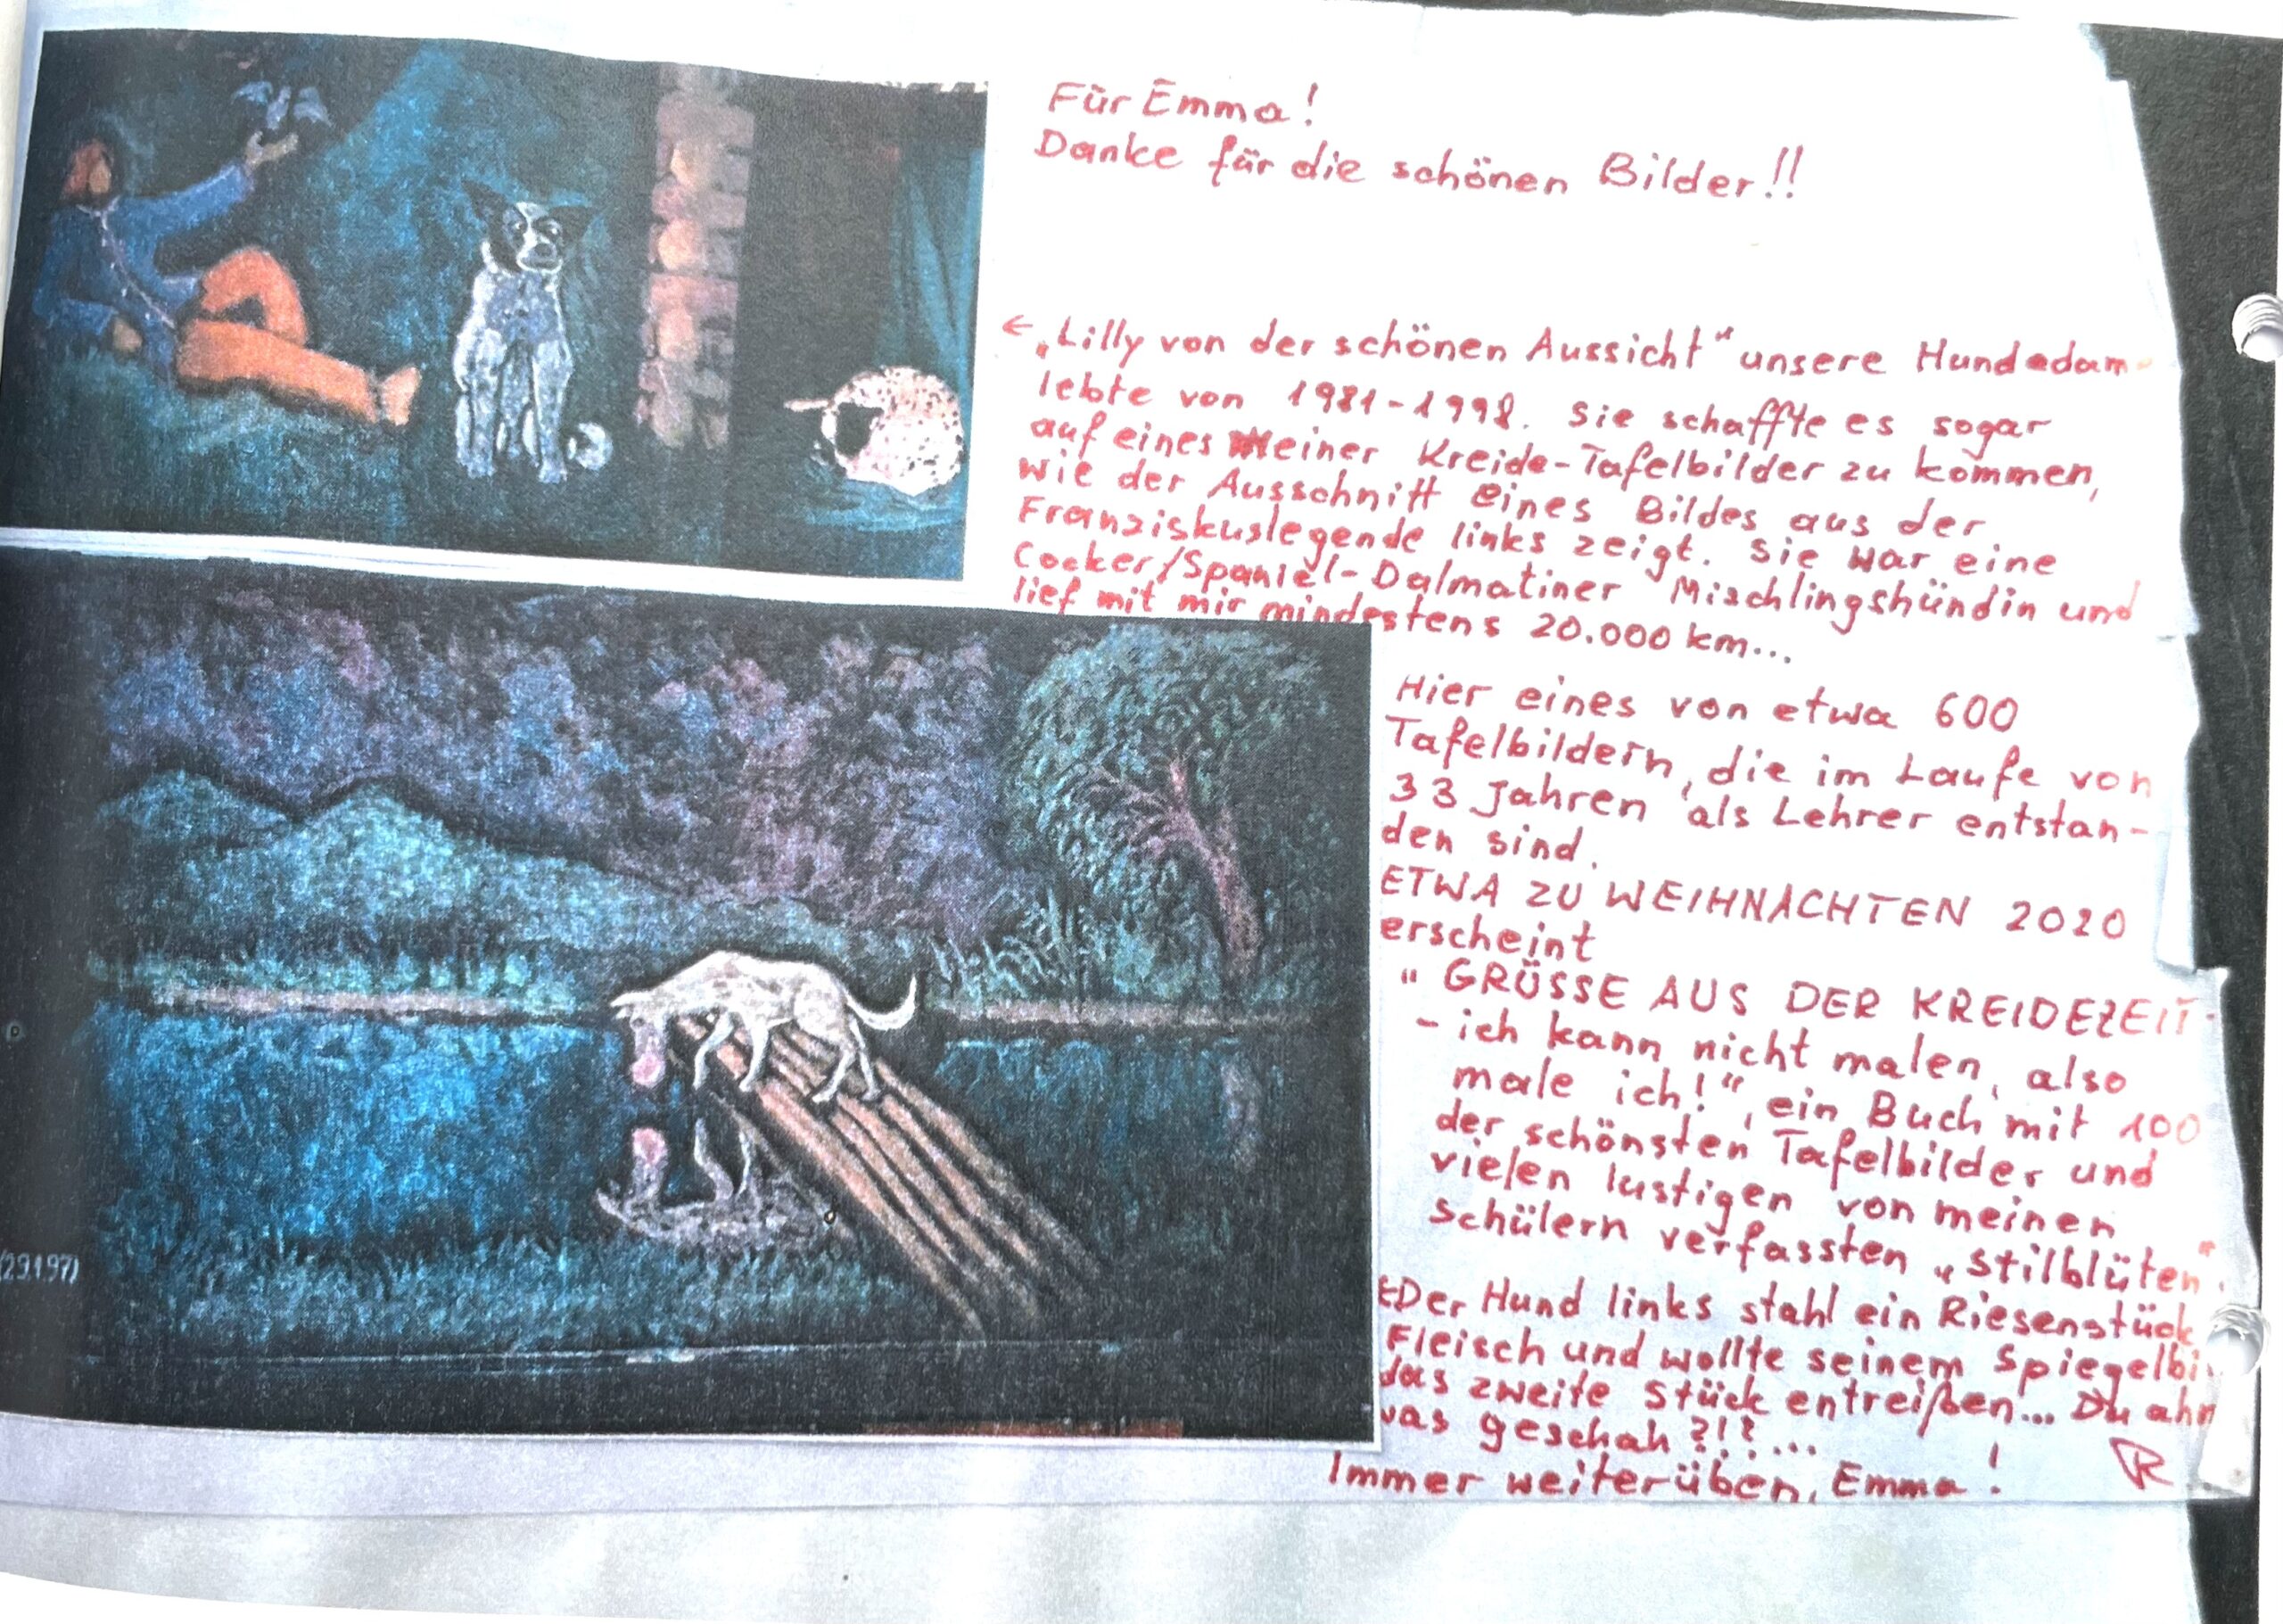 Für Emma!
Danke für die schönen Bilder!!
← „Lilly von der schönen Aussicht" unsere Hundedam-
lebte von 1981-1998. Sie schaffte es sogar
auf eines meiner Kreide-Tafelbilder zu kommen,
wie der Ausschnitt eines Bildes aus der
Franziskuslegende links zeigt. Sie war eine
Cocker/Spaniel-Dalmatiner Mischlingshündin und
lief mit mir mindestens 20.000 km...
Hier eines von etwa 600
Tafelbildern, die im Laufe von
33 Jahren als Lehrer entstan-
den sind.
ETWA ZU WEIHNACHTEN 2020
erscheint
" GRÜSSE AUS DER KREIDEZEIT
- ich kann nicht malen, also
male ich!", ein Buch mit 100
der schönsten Tafelbilder und
vielen lustigen von meinen
Schülern verfassten „Stilblüten".
←Der Hund links stahl ein Riesenstück
Fleisch und wollte seinem Spiegelbi
das zweite Stück entreißen... Du ahn
was geschah?!?...
Immer weiterüben, Emma!
R
(29.1.97)